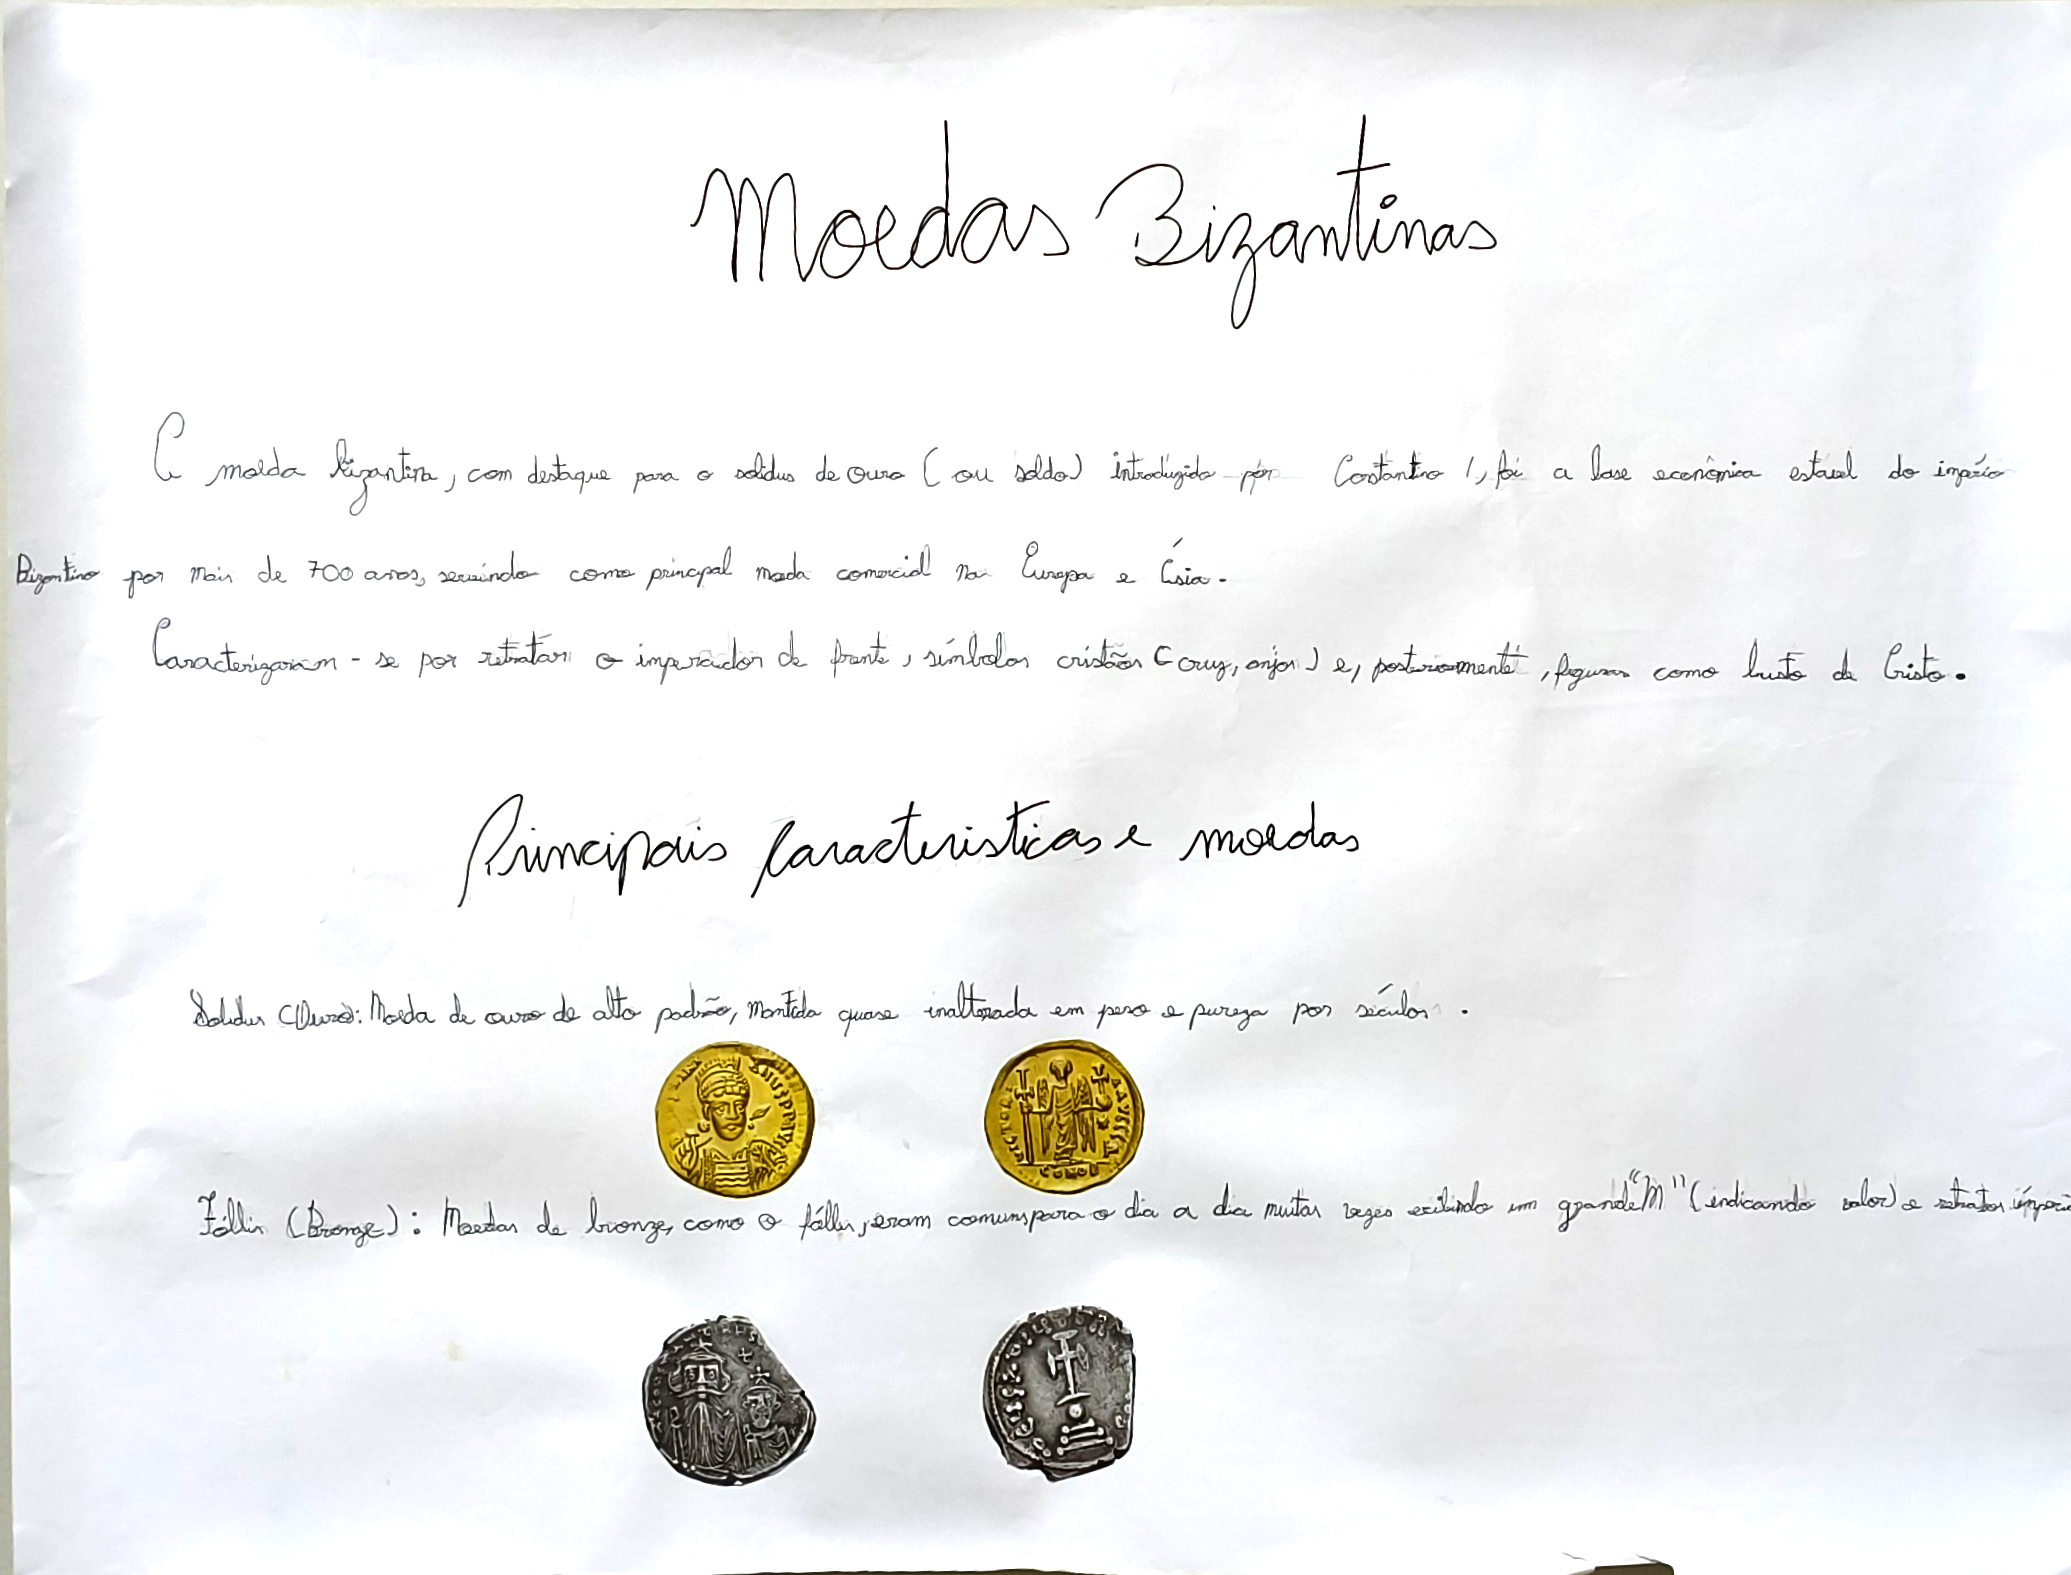 Moedas Bizantinas
A moeda bizantina, com destaque para o solidus de ouro (ou soldo) introduzido por Costantino I, foi a base econômica estavel do império
Bizantino por mais de 700 anos, servindo como principal moeda comercial na Europa e Ásia.
Caracterizaram-se por retratar o imperador de frente, símbolos cristãos (cruz, anjos) e, posteriormente, figuras como busto de Cristo.
Principais Caracteristicas e moedas
Solidus (Ouro): Moeda de ouro de alto padrão, Mantida quase inalterada em peso e pureza por séculos.
Fóllis (Bronze): Moedas de bronze, como o fóllis, eram comuns para o dia a dia muitas vezes exibindo um grande "M" (indicando valor) e retratos
CONOB